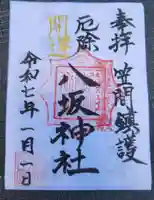 奉拝 笠間鎮護
厄除
八坂神社
令和七年一月一日